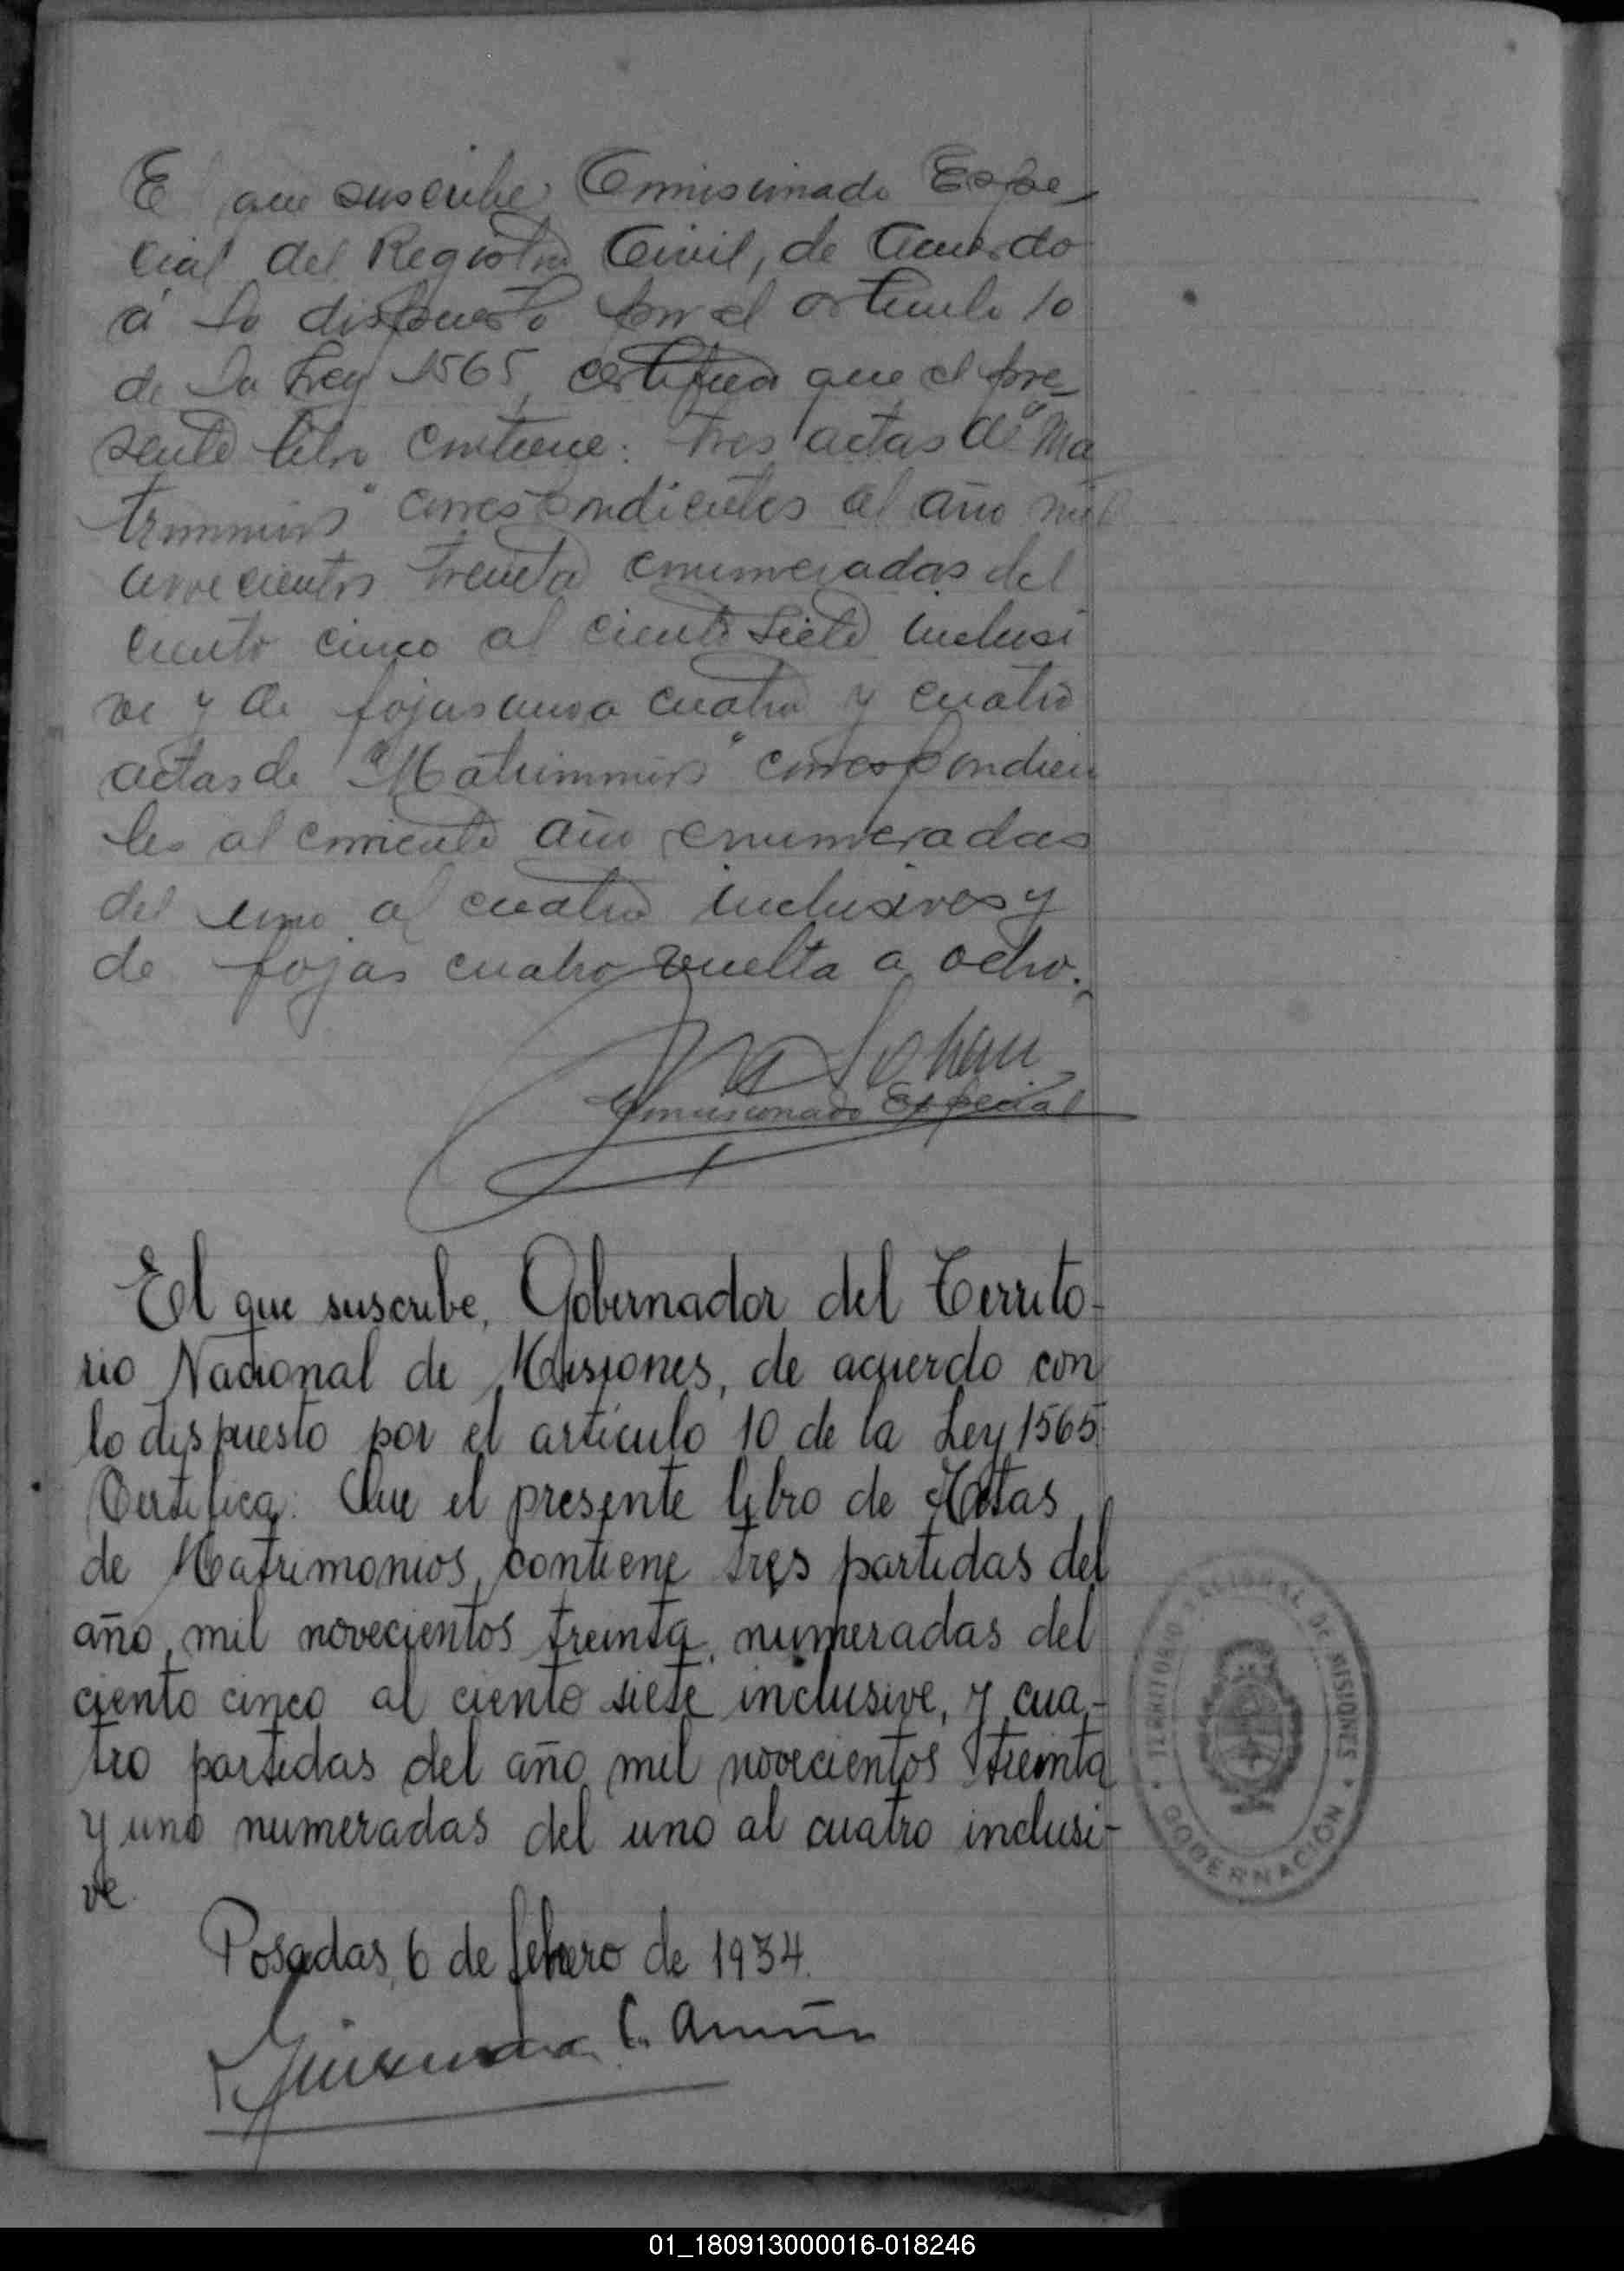 El que suscribe Comisionado Espe
cial del Registro Civil, de acuerdo
á lo dispuesto por el artículo 10
de la Ley 1565, certifica que el pre
sente libro contiene: tres actas de "Ma
trimonios" correspondientes al año mil
novecientos treinta enumeradas del
ciento cinco al ciento siete inclusi
ve y de fojas uno a cuatro y cuatro
actas de "Matrimonios" correspondien
tes al corriente año enumeradas
del uno al cuatro inclusives y
de fojas cuatro vuelta a ocho.
Comisionado Especial
El que suscribe, Gobernador del Territo-
rio Nacional de Misiones, de acuerdo con
lo dispuesto por el artículo 10 de la Ley 1565
Certifica: Que el presente libro de Actas
de Matrimonios, contiene tres partidas del
año mil novecientos treinta, numeradas del
ciento cinco al ciento siete inclusive, y cua-
tro partidas del año mil novecientos treinta
y uno numeradas del uno al cuatro inclusi-
ve.
TERRITORIO NACIONAL DE MISIONES
GOBERNACIÓN
Posadas, 6 de febrero de 1934.
C.
01_180913000016-018246